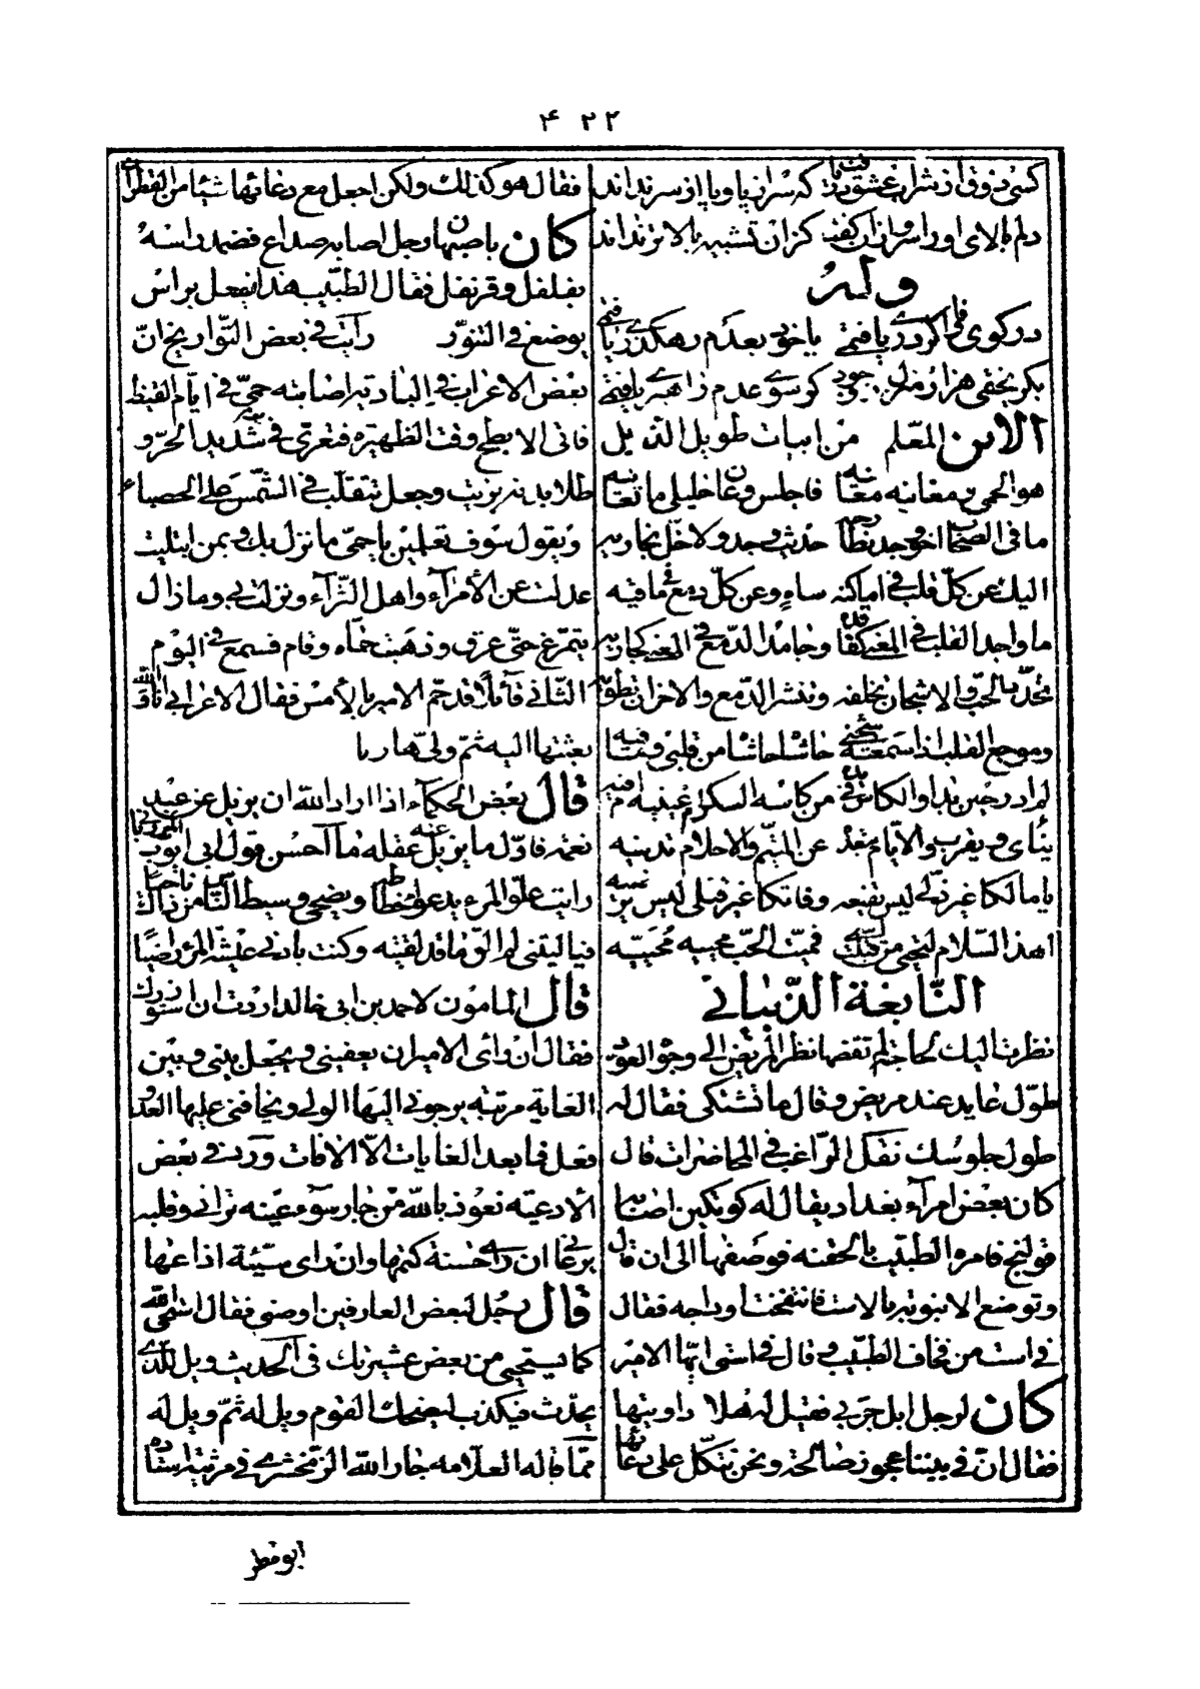 ۴۲۲
کسی ذوق از شراب عشق دریافت که سر از پا و پا از سر نداند
دلم بالای او را سرو از آن گفت کز آن تشبیه بالاتر نداند
وله
در کوی فنا گر در یافتمی با خود بعدم رهگذری یافتمی
بگریختمی هزار منزل ز وجود گر سوی عدم راهبری یافتمی
الابن المعلم من ابیات طویل الذیل
هو الحمی ومغانیه معانیه فاجلس وعان خلیلی ما تعانیه
ما فی الصحاب اخو وجد نطارحه حدیث وجد ولا خل نجاریه
الیک عن کل قلب فی اماکنه ساه وعن کل دمع فی مآقیه
ما واجد القلب فی المعنی کفاقده وجامد الدمع فی المعنی کجاریه
وموجع القلب اذا سمعته
لم ادر حین بدا والکاس فی یده من کاسه السکر ام عینیه ام فیه
ینأی ویقرب والایام تبعده عن المتیم والاحلام تدنیه
یا مالکا غیر ذلی لیس یقنعه وفاتکا غیر قتلی لیس یرضیه
اهد السلام لتحیی من قتلت فمیت الحب محییه محییه
النابغة الذبیانی
نظرت الیک لحاجة لم تقضها نظر المریض الی وجوه العود
طول عاید عند مریض وقال ما تشتکی فقال له
طول جلوسک نقل الراغب فی المحاضرات قال
کان بعض امرآء بغداد یقال له کوتکین اصابه
قولنج فامره الطبیب بالحقنه فوصفها الی ان قال
وتوضع الانبوبة بالاست فانتفخت اوداجه فقال
فی است من فخاف الطبیب وقال فی استی ایها الامیر
کان لرجل ابل جربی فقیل له هلا داویتها
فقال ان فی بیتنا عجوز صالحة ونحن نتکل علی دعائها
فقال هو کذلک ولکن اجعل مع دعائها شیئا من القطران
کان باصبهان رجل اصابه صداع فضمد راسه
بفلفل وقرنفل فقال الطبیب هذا یفعل براس
یوضع فی التنور رایت فی بعض التواریخ ان
بعض الاعراب فی البادیة اصابته حمی فی ایام القیظ
فاتی الابطح وقت الظهیره فتعری فی شدید الحر و
طلا بدنه بزیت وجعل یتقلب فی الشمس علی الحصباء
ویقول سوف تعلمین یا حمی ما نزل بک وبمن ابتلیت
عدلت عن الامرآء واهل الثرآء ونزلت بی وما زال
یتمرغ حتی عرق وذهبت حماه وقام فسمع فی الیوم
الثانی قائلا قد حم الامیر بالامس فقال الاعرابی انا والله
بعثتها الیه ثم ولی هاربا
قال بعض الحکمآء اذا اراد الله ان یزیل عن عبد
نعمة فاول ما یزیل عنه عقله ما احسن قول ابی ایوب
رایت علو المرء یدعو انحطاطه ویضحی وسیط الناس من ذاک ناجیا
فیالیتنی لم الق ما قد لقیته وکنت بادنی عیشة المرء راضیا
قال المامون لاحمد بن ابی خالد اردت ان استوزرک
فقال ان رای الامیر ان یعفینی ویجعل بینی وبین
الغایة مرتبة یرجونی الیها الولی ویخافنی علیها العدو
فعل فما بعد الغایات الا الافات ورد فی بعض
الادعیة نعوذ بالله من جار سوء عینه ترانی وقلبه
یرعانی ان رای حسنة کتمها وان رای سیئة اذاعها
قال رجل لبعض العارفین اوصنی فقال استحی الله
کما یستحیی من بعض عشیرتک فی الحدیث ویل للذی
یحدث فیکذب لیضحک القوم ویل له ثم ویل له
مما قاله العلامه جار الله الزمخشری فی مرثیة استاده
ابو مضر